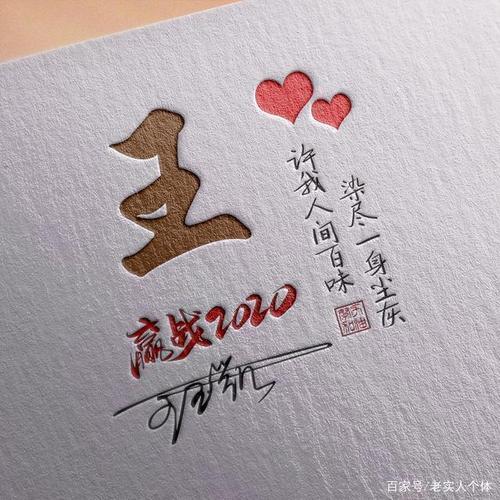 王
许我人间百味
染尽一身尘灰
赢战2020
百家号/老实人个体